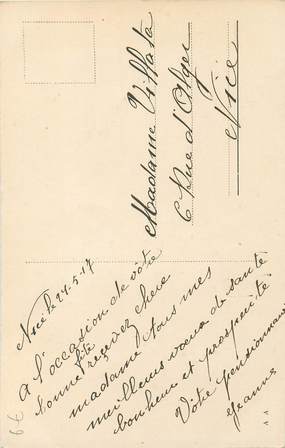 Madame Viffata
6 Rue d'Alger
Nice
Nice le 24-5-17
A l'occasion de vôtre
bonne fête recevez chère
madame tous mes
meilleurs vœux de santé
bonheur et prospérité
Vôtre pensionnaire
Jeanne
6€